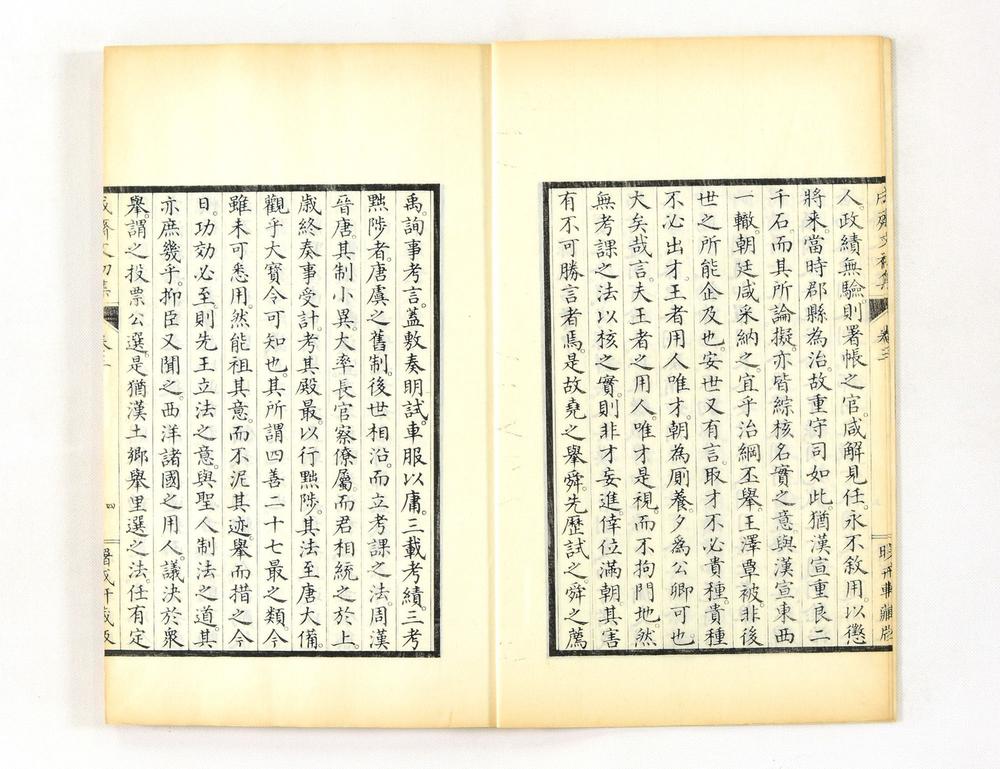 人。政績無驗。則署帳之官。咸解見任。永不敘用。以懲
將來。當時郡縣為治。故重守司如此。猶漢宣重良二
千石。而其所論擬。亦皆綜核名實之意。與漢宣東西
一轍。朝廷咸采納之。宜乎治綱丕舉。王澤覃被。非後
世之所能企及也。安世又有言。取才不必貴種。貴種
不必出才。王者用人唯才。朝為厠養。夕為公卿可也。
大矣哉言。夫王者之用人。唯才是視。而不拘門地。然
無考課之法以核之實。則非才妄進。倖位滿朝。其害
有不可勝言者焉。是故堯之舉舜。先歷試之。舜之薦
禹。詢事考言。蓋敷奏明試。車服以庸。三載考績。三考
黜陟者。唐虞之舊制。後世相沿。而立考課之法。周漢
晉唐。其制小異。大率長官察僚屬。而君相統之於上。
歲終奏事受計。考其殿最。以行黜陟。其法至唐大備。
觀乎大寶令可知也。其所謂四善二十七最之類。今
雖未可悉用。然能祖其意。而不泥其迹。舉而措之今
日。功効必至。則先王立法之意。與聖人制法之道。其
亦庶幾乎。抑臣又聞之。西洋諸國之用人。議決於衆
舉。謂之投票公選。是猶漢土鄉舉里選之法。任有定
卷三
四